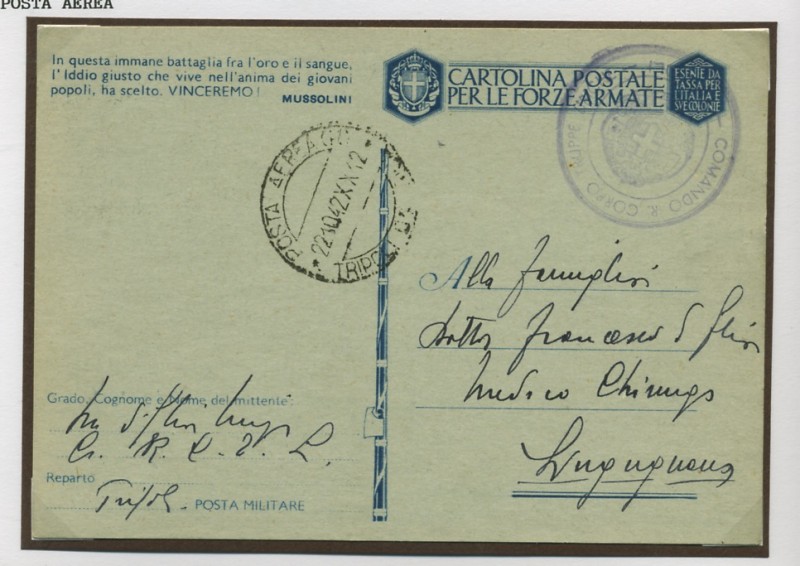 POSTA AEREA
In questa immane battaglia fra l'oro e il sangue,
l'Iddio giusto che vive nell'anima dei giovani
popoli, ha scelto. VINCEREMO!
MUSSOLINI
CARTOLINA POSTALE
PER LE FORZE ARMATE
ESENTE DA
TASSA PER
L'ITALIA E
SVE COLONIE
COMANDO R. CORPO TRUPPE
POSTA AEREA
22.10.42.XX.12
TRIPOLI
Alla famiglia
Dottor Francesco
Medico Chirurgo
Grado, Cognome e Nome del mittente:
Reparto
Tripoli
POSTA MILITARE